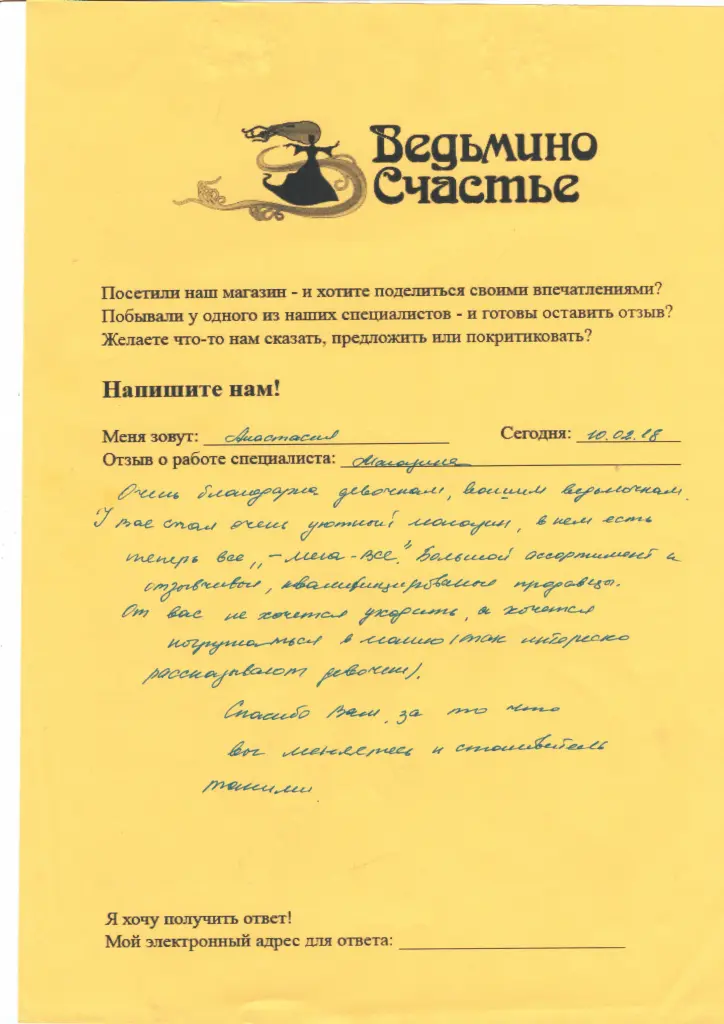 Ведьмино
Счастье
Посетили наш магазин - и хотите поделиться своими впечатлениями?
Побывали у одного из наших специалистов - и готовы оставить отзыв?
Желаете что-то нам сказать, предложить или покритиковать?
Напишите нам!
Меня зовут: Анастасия Сегодня: 10.02.18
Отзыв о работе специалиста: Магазина
Очень благодарна девочкам, вашим ведьмочкам.
У вас стал очень уютный магазин, в нем есть
теперь все „-мега-все". Большой ассортимент и
отзывчивые, квалифицированые продавцы.
От вас не хочется уходить, а хочется
погружаться в магию (так интересно
рассказывают девочки).
Спасибо Вам, за то что
вы меняетесь и становитесь
такими
Я хочу получить ответ!
Мой электронный адрес для ответа: